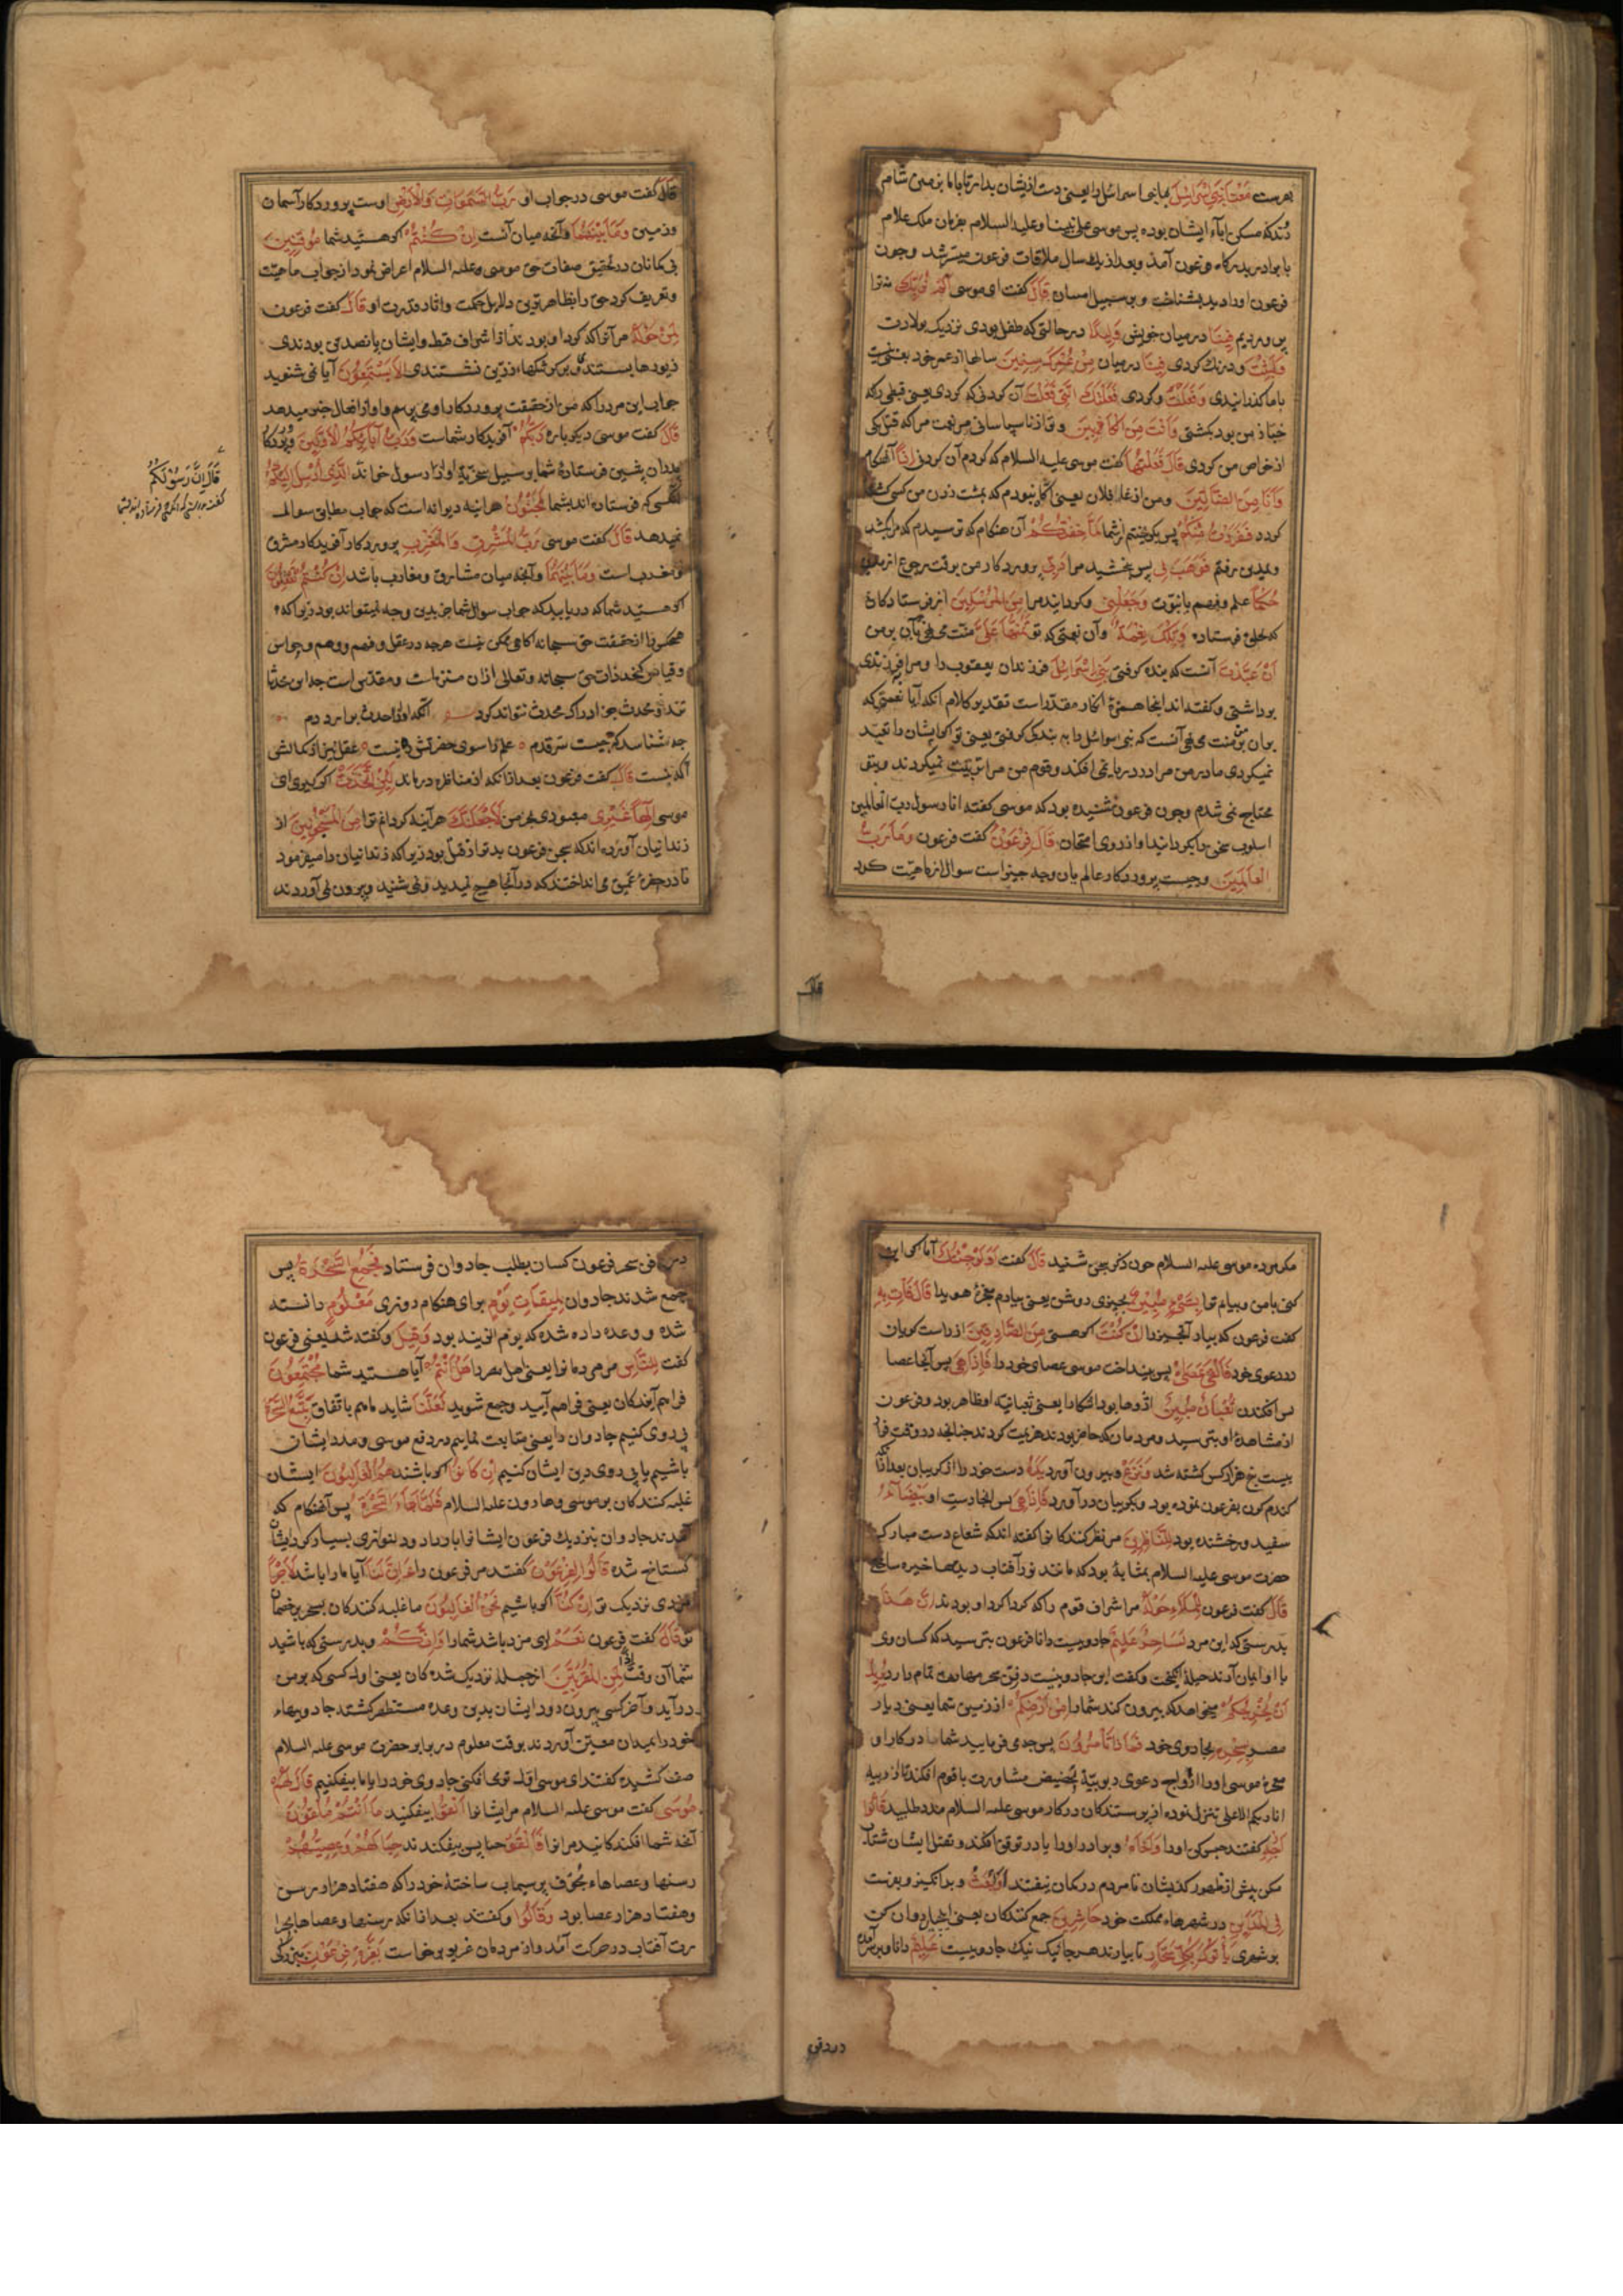 بفرست مَعَنَا بَنِی اِسْرَائِیلَ با ما بنی اسرائیل را یعنی دست از یشان بدار تا با ما بزمین شام
روند که مسکن آباء ایشان بوده پس موسی علی نبینا و علیه السلام بفرمان ملک علام
با برادر بدرگاه فرعون آمد و بعد از یک سال ملاقات فرعون میسر شد و چون
فرعون او را دید بشناخت و بر سبیل امتنان قَالَ گفت ای موسی اَلَمْ نُرَبِّكَ نه ترا
پروردیم فِینَا در میان خویش وَلِیدًا در حالتی که طفل بودی نزدیک بولادت
وَلَبِثْتَ و درنک کردی فِینَا در میان مِنْ عُمُرِكَ سِنِینَ سالها از عمر خود یعنی سی
با ما گذرانیدی وَفَعَلْتَ و کردی فَعْلَتَكَ الَّتِی فَعَلْتَ آن کردنی که کردی یعنی قبطی را که
خباز من بود بکشتی وَاَنْتَ مِنَ الْكَافِرِینَ و تو از ناسپاسانی مر نعمت مرا که قتل یکی
از خواص من کردی قَالَ فَعَلْتُهَا گفت موسی علیه السلام که کردم آن کردنی اِذًا آنهنگام
وَاَنَا مِنَ الضَّالِّینَ و من از غافلان یعنی آگاه نبودم که بمشت زدن من کسی کشته
گردد فَفَرَرْتُ مِنْكُمْ پس بگریختم از شما لَمَّا خِفْتُكُمْ آن هنگام که ترسیدم که مرا بکشید
و بمدین رفتم فَوَهَبَ لِی پس بخشید مرا رَبِّی پروردگار من بوقت رجوع از مدین
حُكْمًا علم و فهم یا نبوت وَجَعَلَنِی و گردانید مرا مِنَ الْمُرْسَلِینَ از فرستادگان
که بخلق فرستاده وَتِلْكَ نِعْمَةٌ و آن نعمتی که تو تَمُنُّهَا عَلَیَّ منت می نهی بآن بر من
اَنْ عَبَّدْتَ آنست که بنده گرفتی بَنِی اِسْرَائِیلَ فرزندان یعقوب را و مرا فرزندی
برداشتی و گفته اند اینجا همزهٔ انکار مقدر است تقدیر کلام آنکه آیا نعمتی که
بدان بر من منت می نهی آنست که بنی اسرائیل را به بندگی گرفتی یعنی تو اگر ایشان را تعبد
نمیکردی مادر من مرا در دریا نمی افکند و قوم من مرا تربیت میکردند و بتو
محتاج نمی شدم و چون فرعون شنیده بود که موسی گفته انا رسول رب العالمین
اسلوب سخن را بگردانید و از روی امتحان قَالَ فِرْعَوْنُ گفت فرعون وَمَا رَبُّ
الْعَالَمِینَ و چیست پروردگار عالمیان و چه چیز است سوال از ماهیت کرد
قال
قَالَ گفت موسی در جواب او رَبُّ السَّمٰوَاتِ وَالْاَرْضِ اوست پروردگار آسمان
و زمین وَمَا بَیْنَهُمَا و آنچه میان آنست اِنْ كُنْتُمْ اگر هستید شما مُوقِنِینَ
بی گمانان در تحقیق صفات حق موسی علیه السلام اعراض نمود از جواب ماهیت
و تعریف کرد حق را بظاهرترین دلایل حکمت و آثار قدرت او قَالَ گفت فرعون
لِمَنْ حَوْلَهُ مر آنرا که گرد او بودند از اشراف قبط و ایشان پانصد تن بودندی
زیورها بسته و بر کرسیهاء زرین نشستندی اَلَا تَسْتَمِعُونَ آیا نمی شنوید
جواب این مرد را که من از حقیقت پروردگار او می پرسم و او از افعال خبر میدهد
قَالَ گفت موسی دیگر باره رَبُّكُمْ آفریدگار شماست وَرَبُّ آبَائِكُمُ الْاَوَّلِینَ و پروردگار
پدران پیشین فرستادهٔ شما بر سبیل سخریة او را رسول خواند الَّذِی اُرْسِلَ اِلَیْكُمْ
آنکسی که فرستاده اند بشما لَمَجْنُونٌ هر اینه دیوانه است که جواب مطابق سوال
نمیدهد قَالَ گفت موسی رَبُّ الْمَشْرِقِ وَالْمَغْرِبِ پروردگار آفریدگار مشرق
و مغرب است وَمَا بَیْنَهُمَا و آنچه میان مشارق و مغارب باشد اِنْ كُنْتُمْ تَعْقِلُونَ
اگر هستید شما که دریابید که جواب سوال شما جز بدین وجه نمیتواند بود زیرا که
هیچکس را از حقیقت حق سبحانه آگاهی ممکن نیست هرچه در عقل و فهم و وهم و حواس
و قیاس گنجد ذات حق سبحانه و تعالی از آن منزه است و مقدس است چه این محدثا
تند و محدث جز ادراک محدث نتواند کرد آنکه او از حدث برآرد دم
چه شناسد که چیست سر قدم علم را سوی حضرتش ره نیست عقل نیز از کمالش
آگه نیست قَالَ گفت فرعون بعد از آنکه از مناظره درماند لَئِنِ اتَّخَذْتَ اگر گیری ای
موسی اِلٰهًا غَیْرِی معبودی بجز من لَاَجْعَلَنَّكَ هر آینه گردانم ترا مِنَ الْمَسْجُونِینَ از
زندانیان آورده اند که سجن فرعون بدتر از قتل بود زیرا که زندانیان را میفرمود
تا در حفرهٔ عمیق می انداختند که در آنجا هیچ نمیدید و نمی شنید و بیرون نمی آوردند
قَالَ اِنَّ رَسُوْلَكُمُ
گفت بدرستی که آن رسول که فرستاده اند بشما
مگر مرده موسی علیه السلام چون ذکر سجن شنید قَالَ گفت اَوَلَوْ جِئْتُكَ آیا اگر این
کنی با من و بیارم ترا بِشَیْءٍ مُبِینٍ بچیزی روشن یعنی بیارم معجزهٔ هویدا قَالَ فَاْتِ بِهِ
گفت فرعون که بیار آنچیز را اِنْ كُنْتَ اگر هستی مِنَ الصَّادِقِینَ از راست گویان
در دعوی خود فَاَلْقٰی عَصَاهُ پس بینداخت موسی عصای خود را فَاِذَا هِیَ پس آنجا عصا
پس افکندن ثُعْبَانٌ مُبِینٌ اژدها بود آشکارا یعنی ثعبانیت او ظاهر بود و فرعون
از مشاهدهٔ او بترسید و مردمان که حاضر بودند هزیمت کردند چنانچه در وقت فرار
بیست پنج هزار کس کشته شد وَنَزَعَ و بیرون آورد یَدَهُ دست خود را از گریبان بعد از آنکه
گندم گون بفرعون نموده بود و بگریبان درآورد فَاِذَا هِیَ پس آنجا دست او بَیْضَاءُ
سفید درخشنده بود لِلنَّاظِرِینَ مر نظر کنندگانرا گفته اند که شعاع دست مبارک
حضرت موسی علیه السلام بمثابهٔ بود که مانند نور آفتاب دیدها خیره ساختی
قَالَ گفت فرعون لِلْمَلَاِ حَوْلَهُ مر اشراف قوم را که گرداگرد او بودند اِنَّ هٰذَا
بدرستی که این مرد لَسَاحِرٌ عَلِیمٌ جادوییست دانا فرعون بترسید که کسان وی
با او ایمان آرند حیلهٔ انگیخت و گفت این جادوییست در فن سحر مهارت تمام دارد یُرِیدُ
اَنْ یُخْرِجَكُمْ میخواهد که بیرون کند شما را مِنْ اَرْضِكُمْ از زمین شما یعنی دیار
مصر بِسِحْرِهِ بجادوی خود فَمَاذَا تَاْمُرُونَ پس چه می فرمایید شما در کار او
معجزهٔ موسی او را از اوج دعوی ربوبیة بحضیض مشاورت با قوم افکند تا از دبدبهٔ
انا ربکم الاعلی تنزل نموده از پرستندگان در کار موسی علیه السلام مدد طلبید قَالُوا
اَرْجِهْ گفتند حبس کن او را وَاَخَاهُ و برادر او را یا در توقف افکن و بقتل ایشان شتاب
مکن پیش از ظهور کذب ایشان تا مردم در گمان نیفتند وَابْعَثْ و برانگیز و بفرست
فِی الْمَدَائِنِ در شهرهاء مملکت خود حَاشِرِینَ جمع کنندگان یعنی این جادوان که
بر شمری یَاْتُوكَ بِكُلِّ سَحَّارٍ تا بیارند هرجا که یک نیک جادوییست عَلِیمٍ دانا و برآمده
در فن
در فن سحر فرعون کسان بطلب جادوان فرستاد فَجُمِعَ السَّحَرَةُ پس
جمع شدند جادوان لِمِیقَاتِ یَوْمٍ برای هنگام روزی مَعْلُومٍ دانسته
شده و وعده داده شده که یوم الزینه بود وَقِیلَ و گفته شد یعنی فرعون
گفت لِلنَّاسِ مر مردمانرا یعنی اهل مصر را هَلْ اَنْتُمْ آیا هستید شما مُجْتَمِعُونَ
فراهم آیندگان یعنی فراهم آیید و جمع شوید لَعَلَّنَا شاید ما هم باتفاق نَتَّبِعُ السَّحَرَةَ
پی روی کنیم جادوان را یعنی متابعت نماییم در دفع موسی و مدد ایشان
باشیم یا پی روی دین ایشان کنیم اِنْ كَانُوا اگر باشند هُمُ الْغَالِبِینَ ایشان
غلبه کنندگان بر موسی و هارون علیه السلام فَلَمَّا جَاءَ السَّحَرَةُ پس آنهنگام که
آمدند جادوان بنزدیک فرعون ایشانرا بار داد و بنوازش بسیار کرد ایشان
گستاخ شده قَالُوا لِفِرْعَوْنَ گفتند مر فرعون را اَئِنَّ لَنَا آیا ما را باشد لَاَجْرًا
مزدی نزدیک تو اِنْ كُنَّا اگر باشیم نَحْنُ الْغَالِبِینَ ما غلبه کنندگان بسحر بر خصمان
تو قَالَ گفت فرعون نَعَمْ آری مزد باشد شما را وَاِنَّكُمْ و بدرستی که باشید
شما آن وقت اِذًا لَمِنَ الْمُقَرَّبِینَ از جمله نزدیک شده گان یعنی اول کسی که بر من
درآید و آخر کسی بیرون رود ایشان بدین وعده مستظهر گشته جادوییهاء
خود را بمیدان معین آوردند بوقت معلوم در برابر حضرت موسی علیه السلام
صف کشیده گفتند ای موسی اول تو می افکنی جادوی خود را یا ما بیفکنیم قَالَ لَهُمْ
مُوسٰی گفت موسی علیه السلام مر ایشانرا اَلْقُوا بیفکنید مَا اَنْتُمْ مُلْقُونَ
آنچه شما افکندگانید مر آنرا فَاَلْقَوْا پس بیفکندند حِبَالَهُمْ وَعِصِیَّهُمْ
رسنها و عصاهاء مجوف پر سیماب ساختهٔ خود را که هفتاد هزار رسن
و هفتاد هزار عصا بود وَقَالُوا و گفتند بعد از آنکه رسنها و عصاها بحرا
رت آفتاب در حرکت آمد و از مردمان غریو برخاست بِعِزَّةِ فِرْعَوْنَ ببزرگی